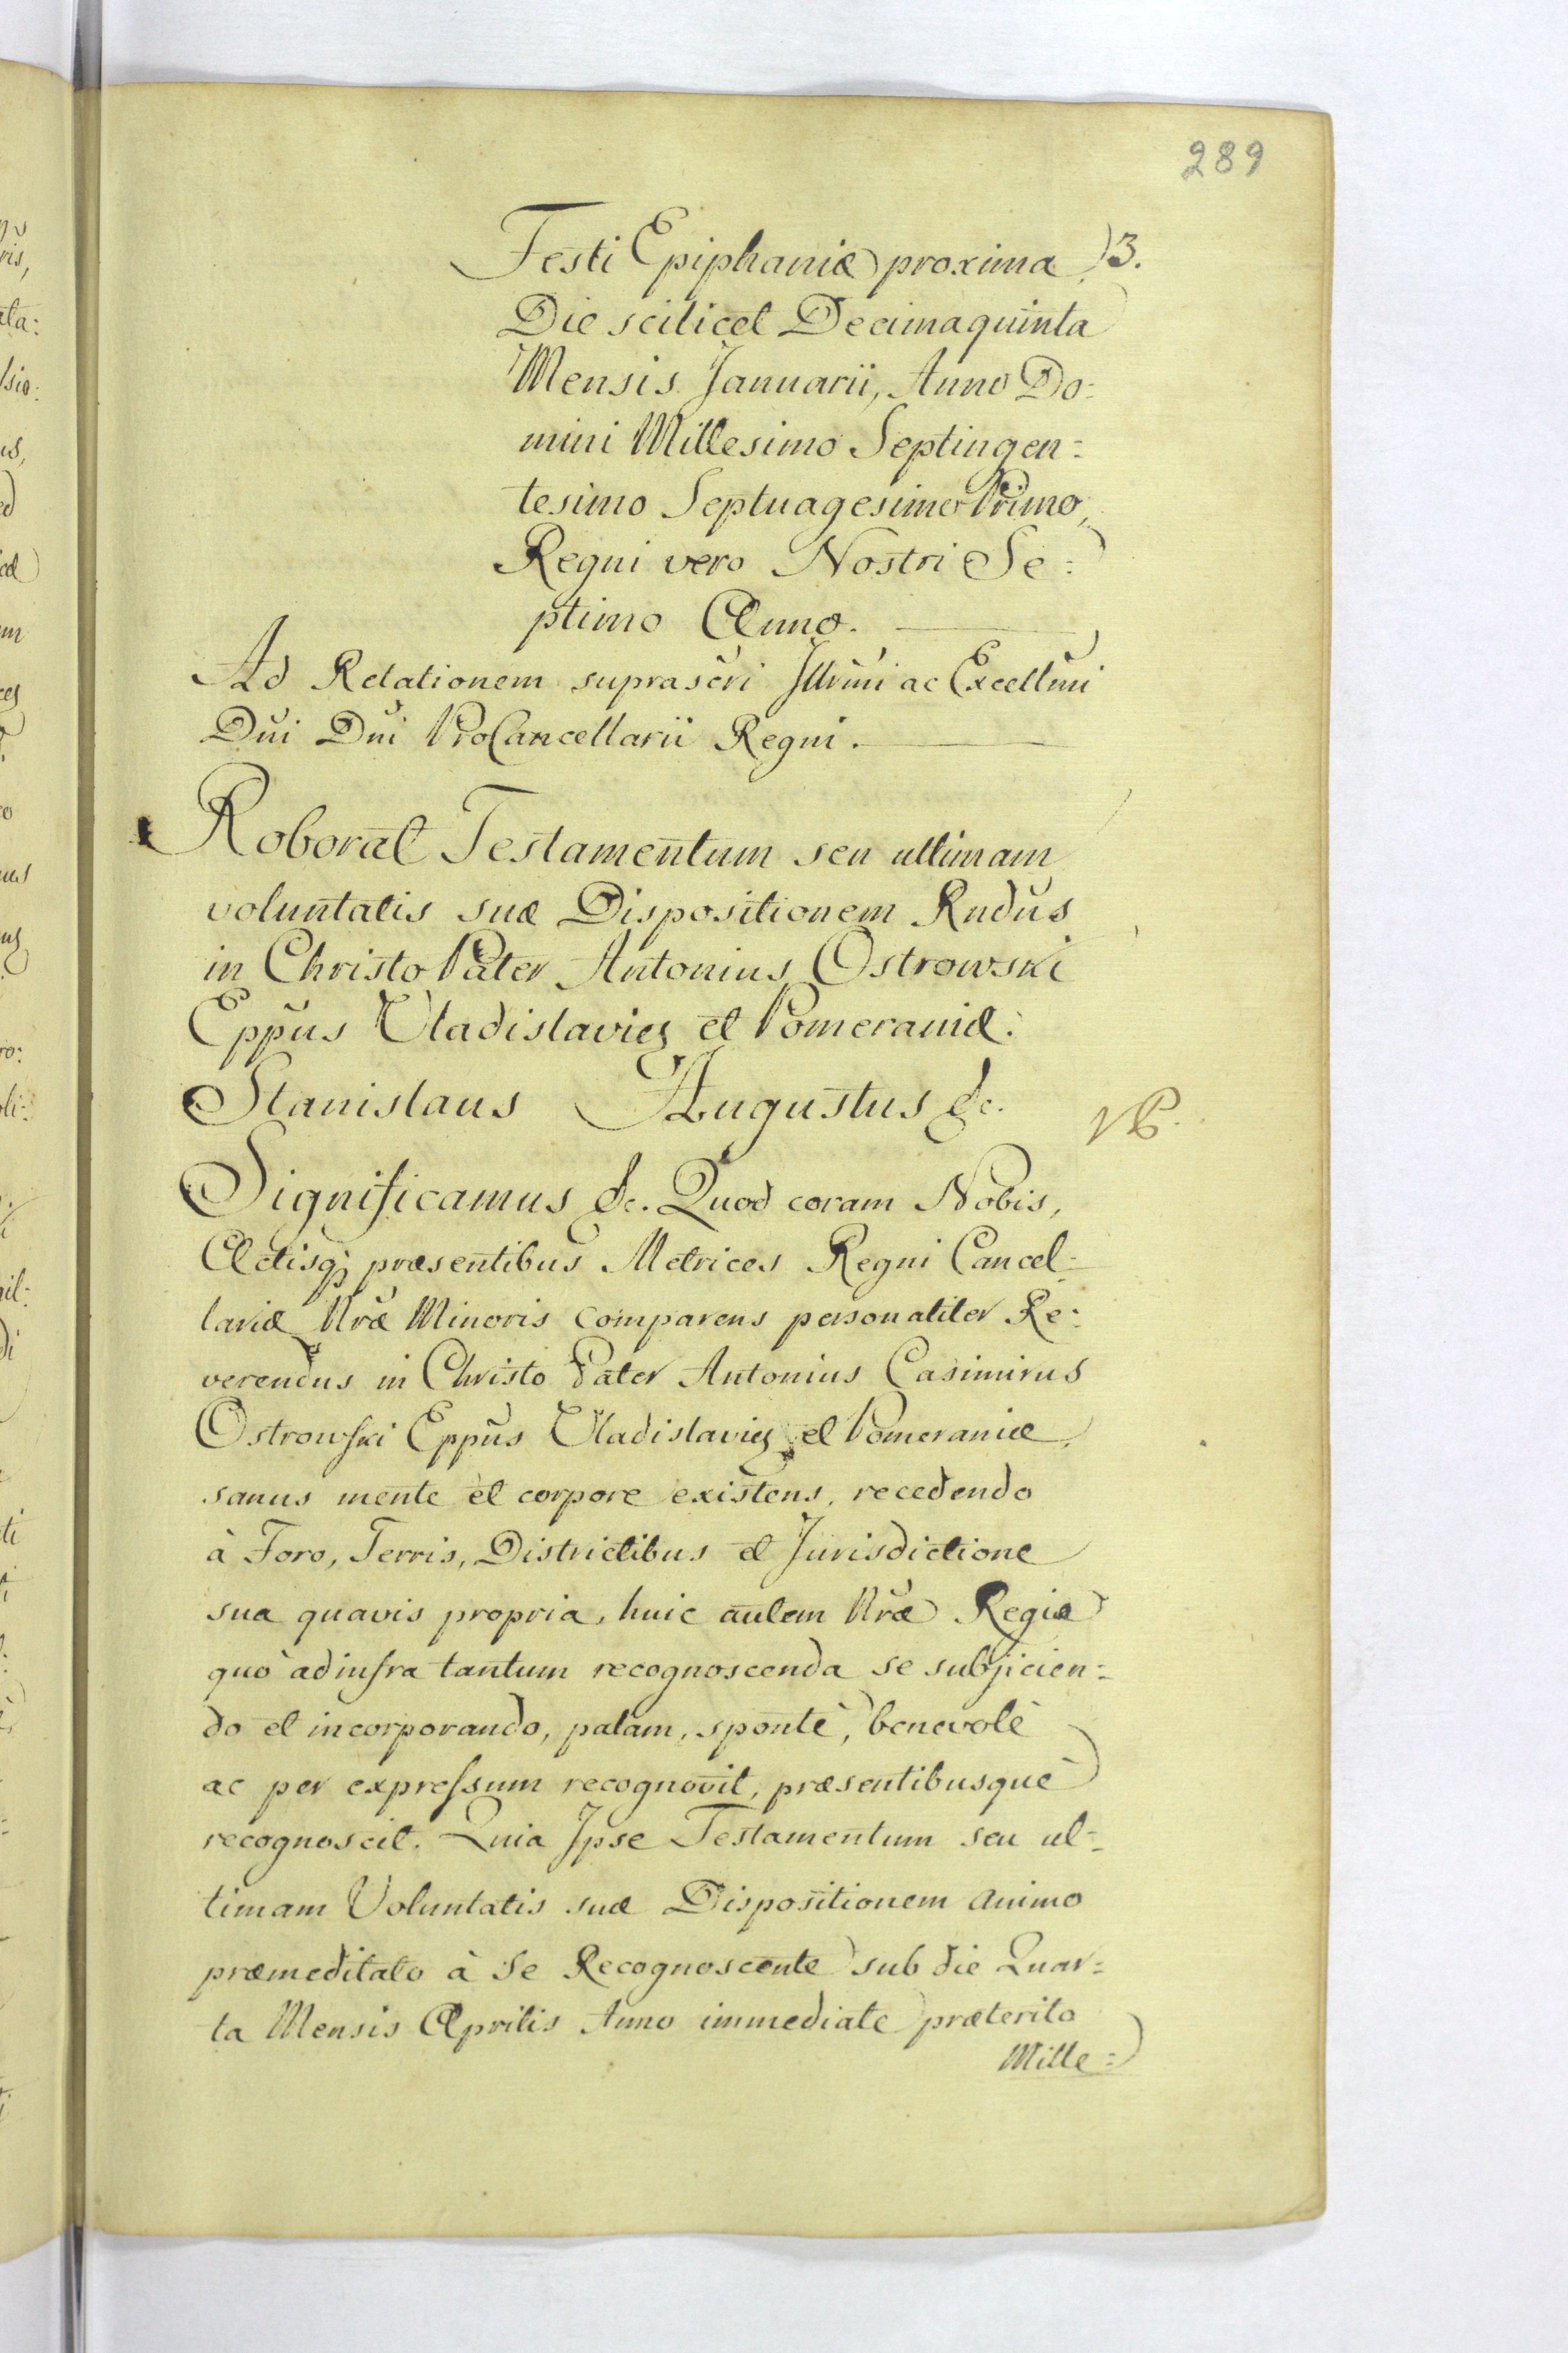 289
Festi Epiphaniæ proxima, 3.
Die scilicet Decimaquinta
Mensis Januarii, Anno Do=
mini Millesimo Septingen=
tesimo Septuagesimo Primo,
Regni vero Nostri Se=
ptimo Anno.
Ad Relationem suprascri Illrmi ac Excellmi
Dni Dni ProCancellarii Regni.
Roborat Testamentum seu ultimam
voluntatis suæ Dispositionem Rndus
in Christo Pater Antonius Ostrowski
Eppus Vladislavien et Pomeraniæ.
Stanislaus Augustus &c.
Significamus &c. Quod coram Nobis,
Actisq; præsentibus Metrices Regni Cancel=
lariæ Nræ Minoris comparens personaliter Re=
verendus in Christo Pater Antonius Casimirus
Ostrowski Eppus Vladislavien et Pomeraniæ,
sanus mente et corpore existens, recedendo
à Foro, Terris, Districtibus et Jurisdictione
sua quavis propria, huic autem Nræ Regiæ
quo ad infra tantum recognoscenda se subjicien=
do et incorporando, palam, sponte, benevolè
ac per expressum recognovit, præsentibusquè
recognoscit. Quia Ipse Testamentum seu ul=
timam Voluntatis suæ Dispositionem animo
præmeditato à Se Recognoscente sub die Quar=
ta Mensis Aprilis Anno immediate præterito
Mille=